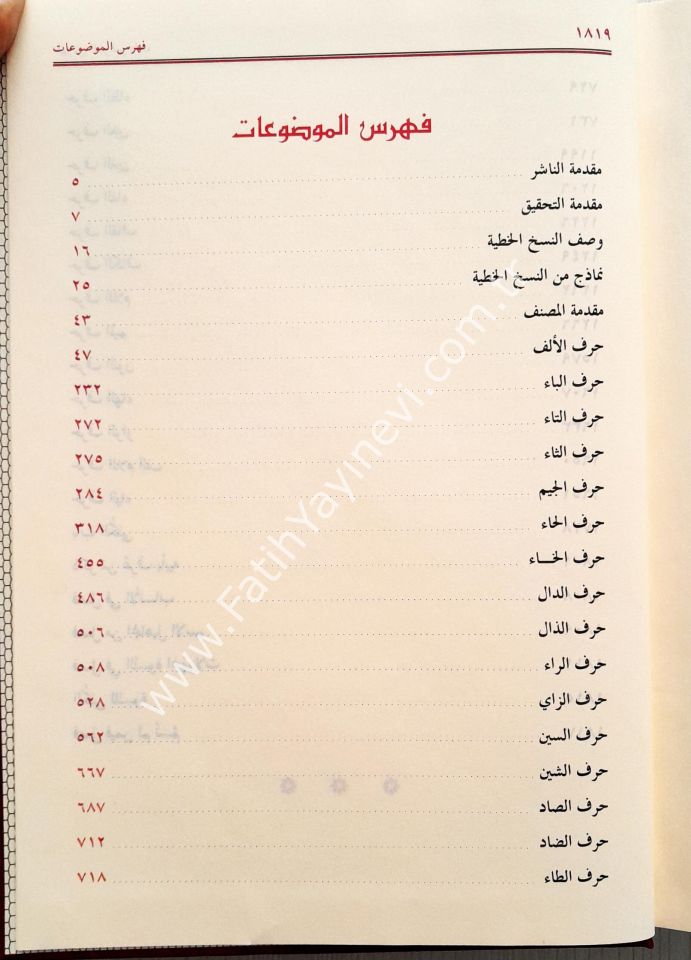 ١٨١٩ فهرس الموضوعات
فهرس الموضوعات
مقدمة الناشر ٥
مقدمة التحقيق ٧
وصف النسخ الخطية ١٦
نماذج من النسخ الخطية ٢٥
مقدمة المصنف ٤٣
حرف الألف ٤٧
حرف الباء ٢٣٢
حرف التاء ٢٧٢
حرف الثاء ٢٧٥
حرف الجيم ٢٨٤
حرف الحاء ٣١٨
حرف الخـــاء ٤٥٥
حرف الدال ٤٨٦
حرف الذال ٥٠٦
حرف الراء ٥٠٨
حرف الزاي ٥٢٨
حرف السين ٥٦٢
حرف الشين ٦٦٧
حرف الصاد ٦٨٧
حرف الضاد ٧١٢
حرف الطاء ٧١٨
www.FatihYayinevi.com.tr